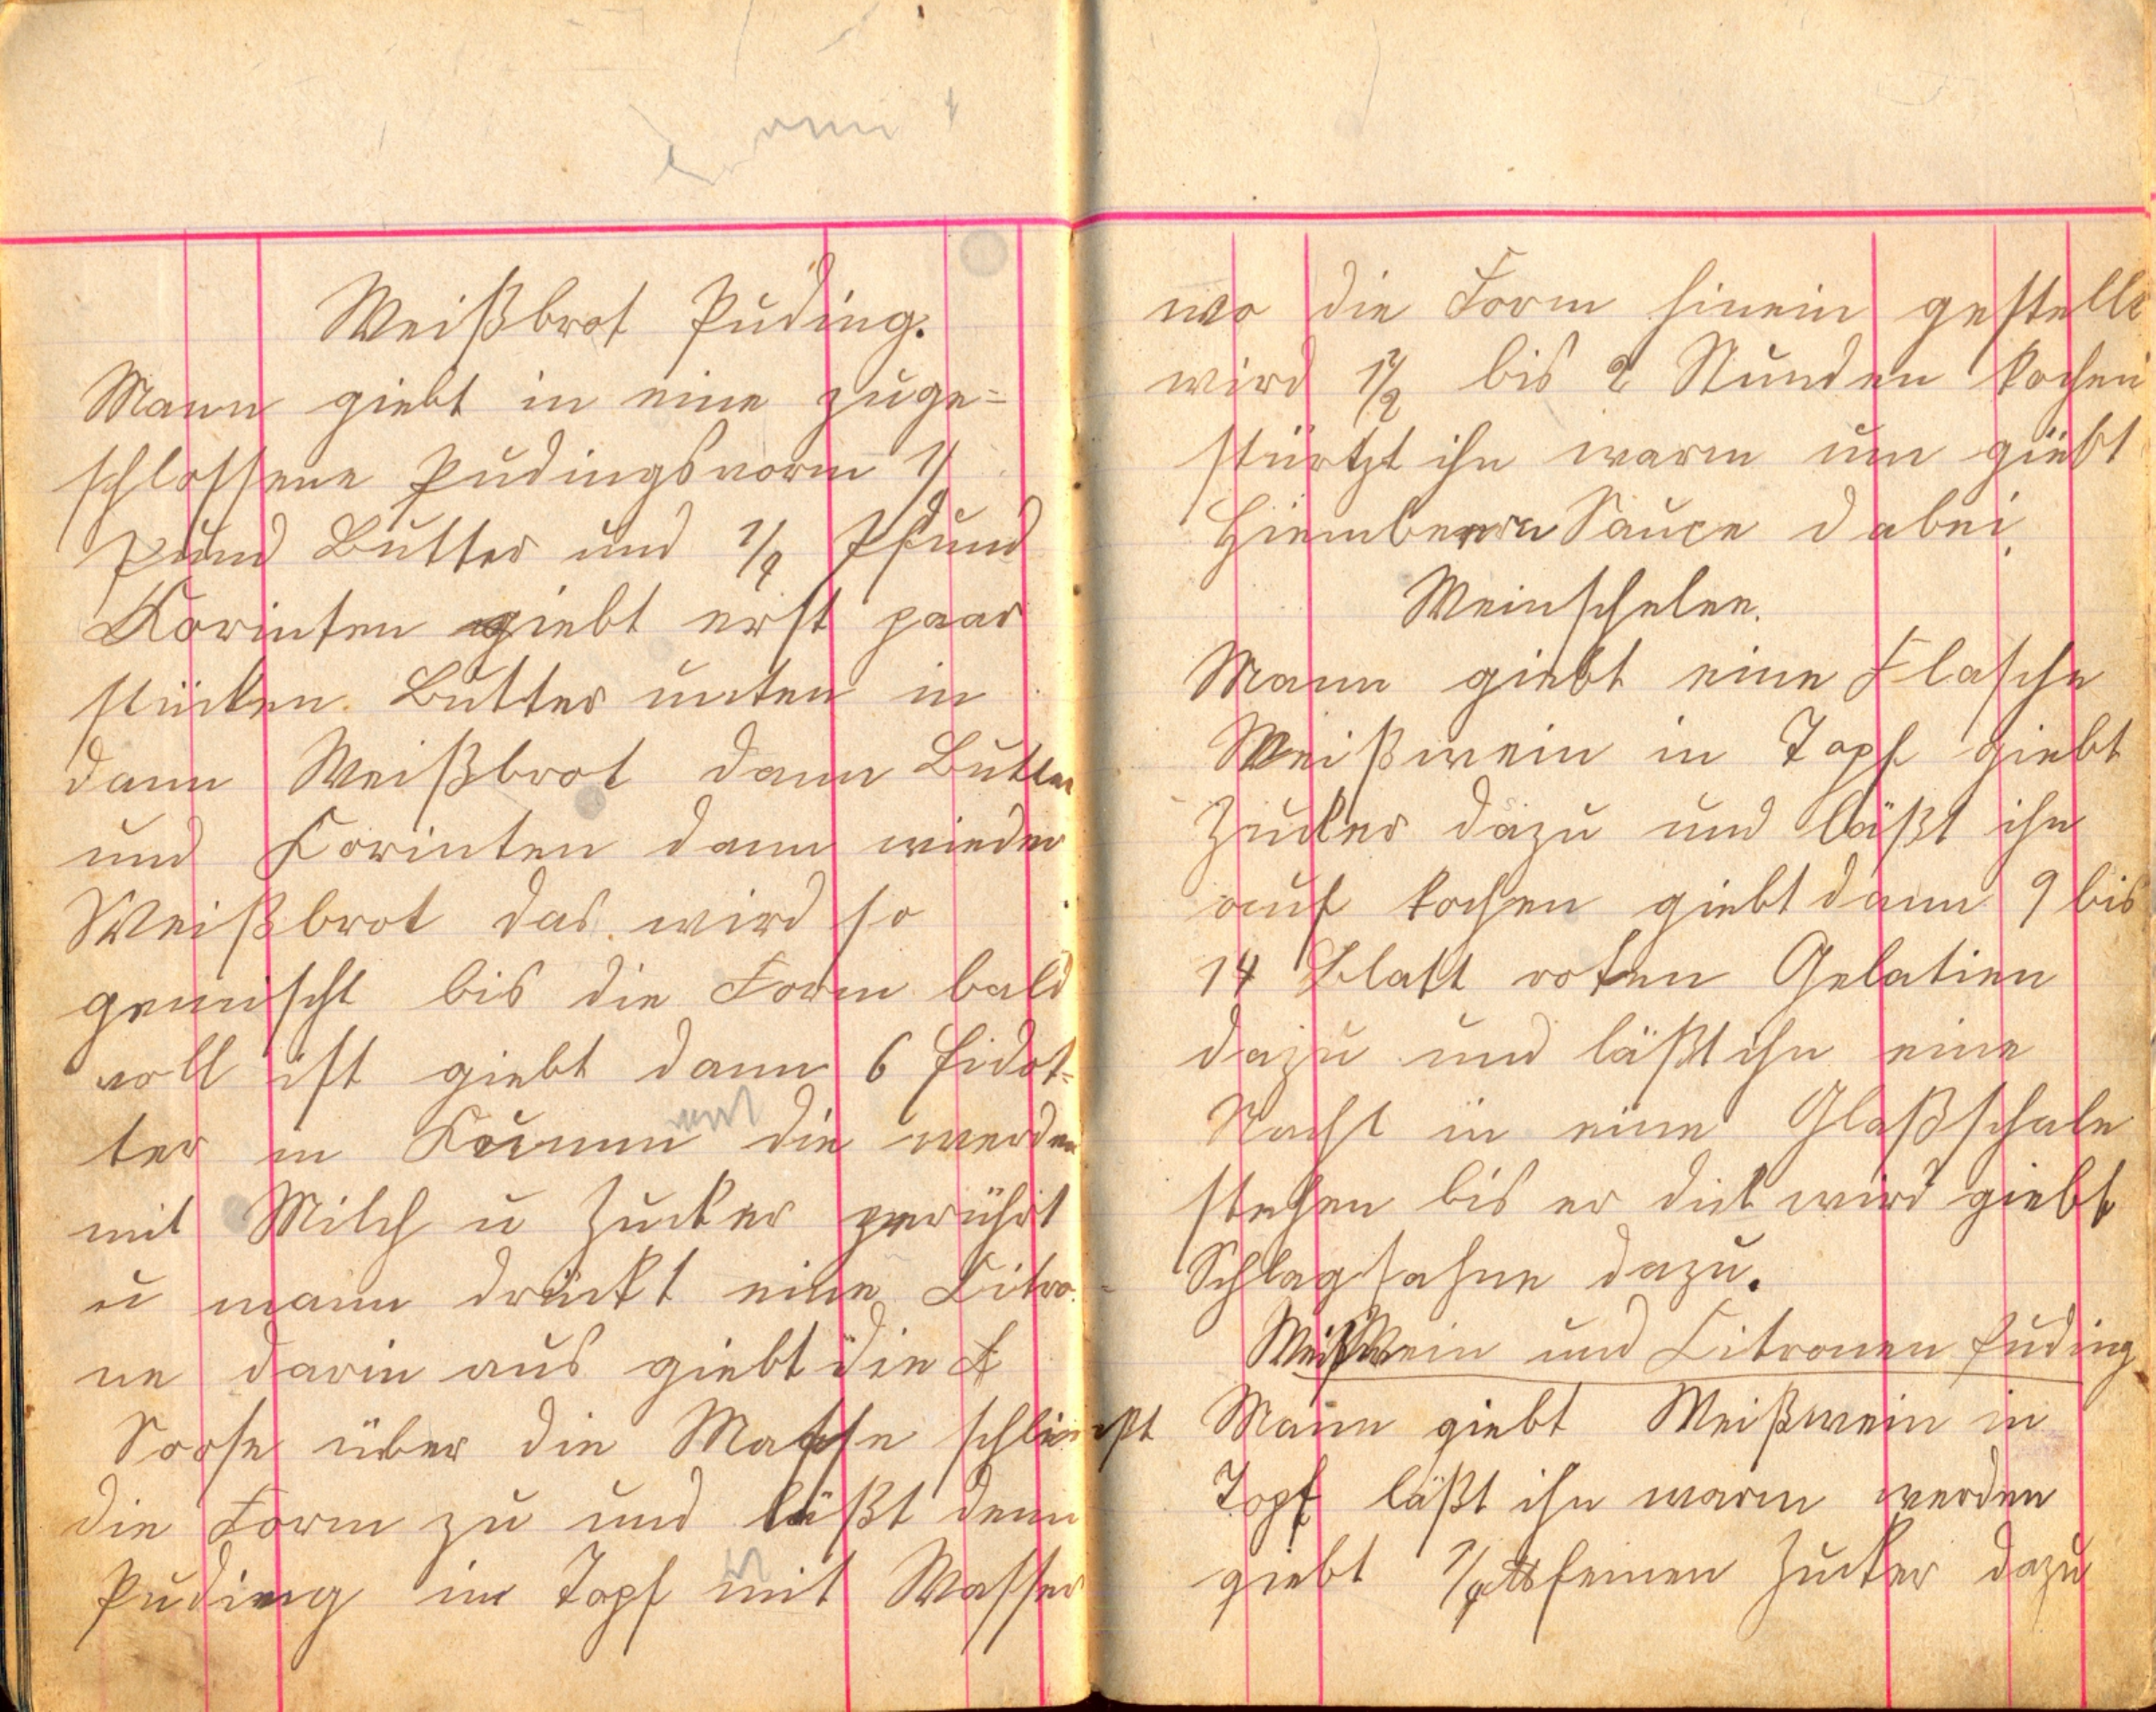 Weißbrot Puding.
Mann giebt in eine zuge=
schlossene Pudingsvorm 1/
Pund Butter und 1/4 Pfund
Korinten giebt erst paar
stücken Butter unten in
dann Weißbrot dann Butter
und Korinten dann wieder
Weißbrot das wird so
gemischt bis die Form bald
voll ist giebt dann 6 Eidot=
ter in Kumm die werden
mit Milch u Zucker gerührt
u mann drückt eine Citro=
ne darin aus giebt die
Sose über die Masse schließt
die Form zu und läßt denn
Puding im Topf mit Wasser
wo die Form hinein gestellt
wird 1 1/2 bis 2 Stunden kochen
stürtzt ihn warm um giebt
Hiembeern Sauce dabei
Weinschelee.
Mann giebt eine Flasche
Weißwein in Topf giebt
Zucker dazu und läßt ihn
auf kochen giebt dann 9 bis
14 Blatt roten Gelatien
dazu und läßt ihn eine
Nacht in eine Glaßschale
stehen bis er dick wird giebt
Schlagsahne dazu.
Weißwein und Citronen Puding
Mann giebt Weißwein in
Topf läßt ihn warm werden
giebt 1/4 feinen Zucker dazu